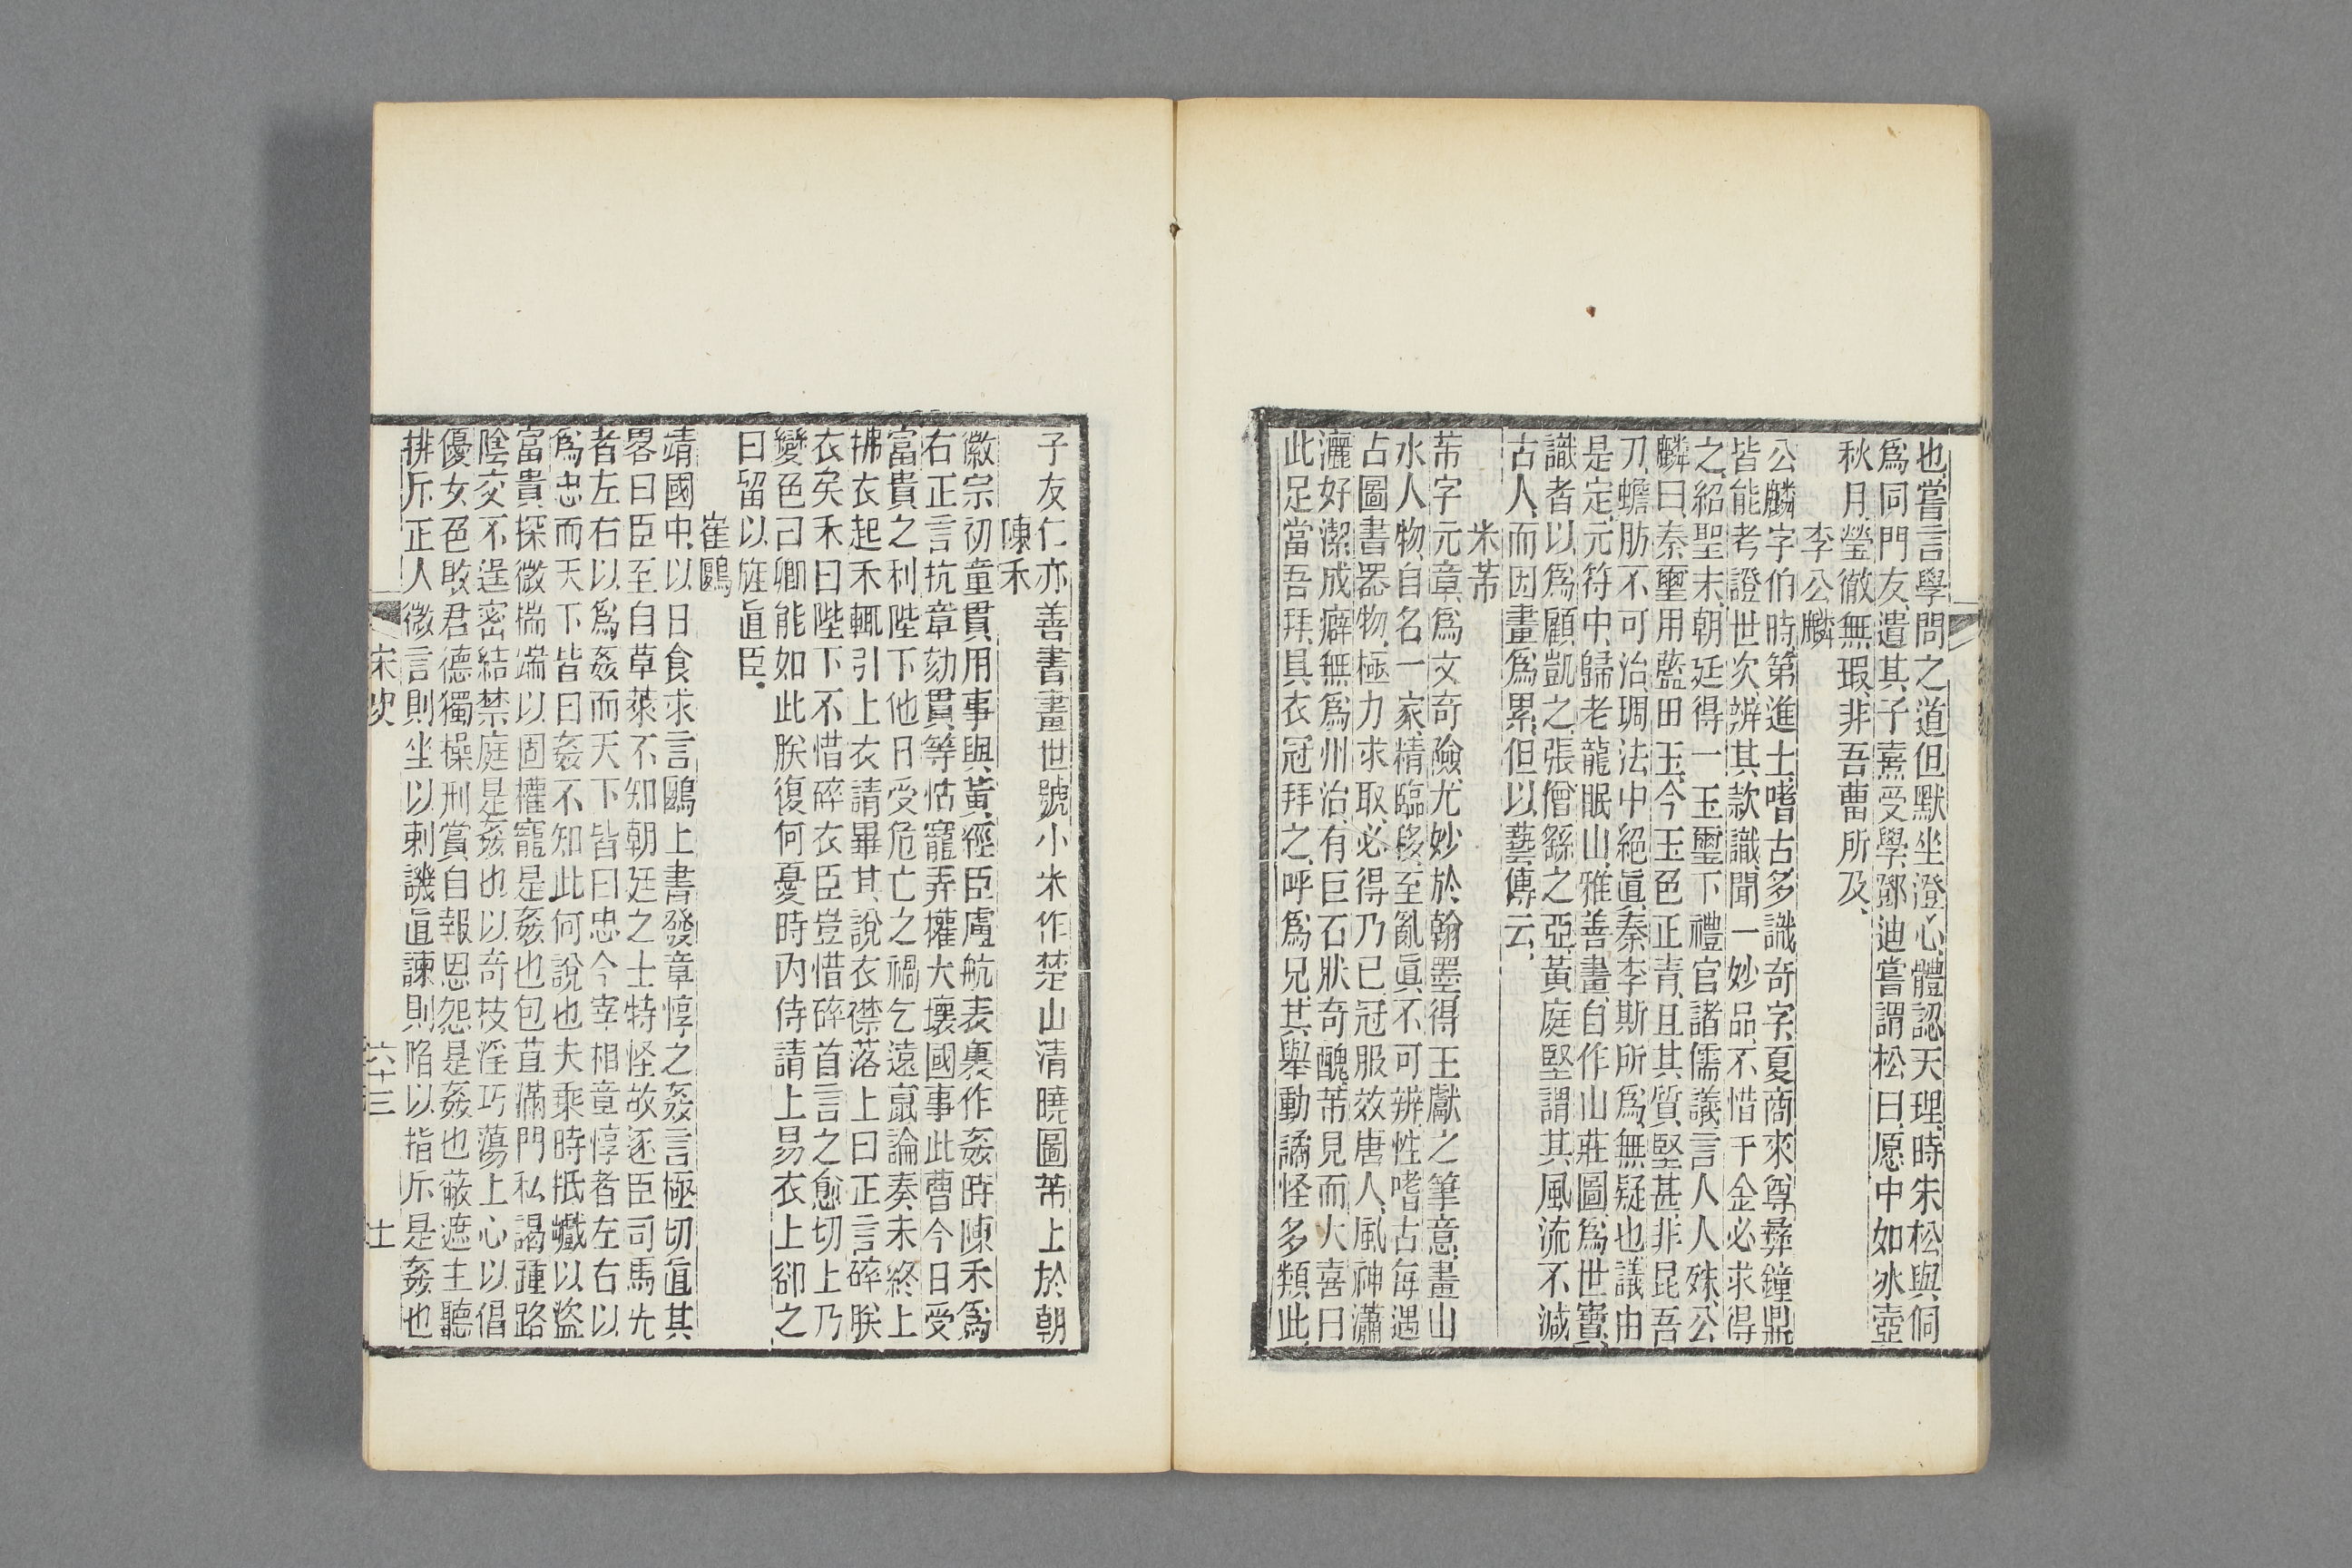 也嘗言學問之道但默坐澄心體認天理時朱松與侗
爲同門友遣其子熹受學鄧迪嘗謂松曰愿中如冰壺
秋月瑩徹無瑕非吾曹所及、
李公麟
公麟字伯時第進士嗜古多識奇字夏商來尊彝鐘鼎
皆能考證世次辨其款識聞一妙品不惜千金必求得
之紹聖末朝廷得一玉璽下禮官諸儒議言人人殊公
麟曰秦璽用藍田玉今玉色正青且其質堅甚非昆吾
刀蟾肪不可治琱法中絕眞秦李斯所爲無疑也議由
是定元符中歸老龍眠山雅善畫自作山莊圖爲世寶
識者以爲顧凱之張僧繇之亞黃庭堅謂其風流不減
古人而因畫爲累但以藝傳云、
米芾
芾字元章爲文奇險尤妙於翰墨得王獻之筆意畫山
水人物自名一家精臨移至亂眞不可辨性嗜古每遇
古圖書器物極力求取必得乃已冠服效唐人風神瀟
灑好潔成癖無爲州治有巨石狀奇醜芾見而大喜曰
此足當吾拜具衣冠拜之呼爲兄其舉動譎怪多類此
子友仁亦善書畫世號小米作楚山清曉圖芾上於朝
陳禾
徽宗初童貫用事與黃經臣盧航表裏作姦時陳禾爲
右正言抗章劾貫等怙寵弄權大壞國事此曹今日受
富貴之利陛下他日受危亡之禍乞遠竄論奏未終上
拂衣起禾輒引上衣請畢其說衣襟落上曰正言碎朕
衣矣禾曰陛下不惜碎衣臣豈惜碎首言之愈切上乃
變色曰卿能如此朕復何憂時內侍請上易衣上卻之
曰留以旌直臣
崔鷗
靖國中以日食求言鷗上書發章惇之姦言極切直其
畧曰臣至自草萊不知朝廷之士特怪故逐臣司馬光
者左右以爲姦而天下皆曰忠今宰相章惇者左右以
爲忠而天下皆曰姦不知此何說也夫乘時抵巇以盜
富貴探微揣端以固權寵是姦也包苴滿門私謁踵路
陰交不逞密結禁庭是姦也以奇技淫巧蕩上心以倡
優女色敗君德獨操刑賞自報恩怨是姦也蔽遮主聽
排斥正人微言則坐以刺譏直諫則陷以指斥是姦也
宋史 六十三 十